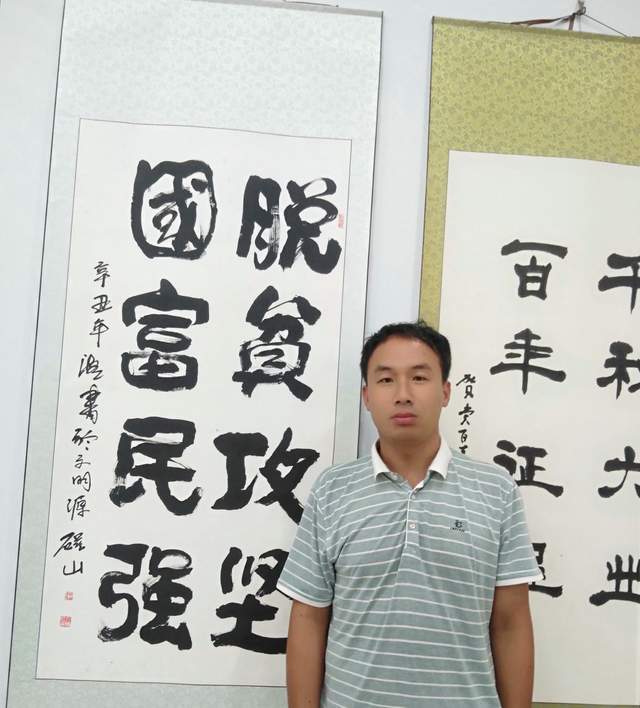 脱贫攻坚
國富民强
辛丑年 書於文明源磁山
千秋大业
百年征程
贺党百